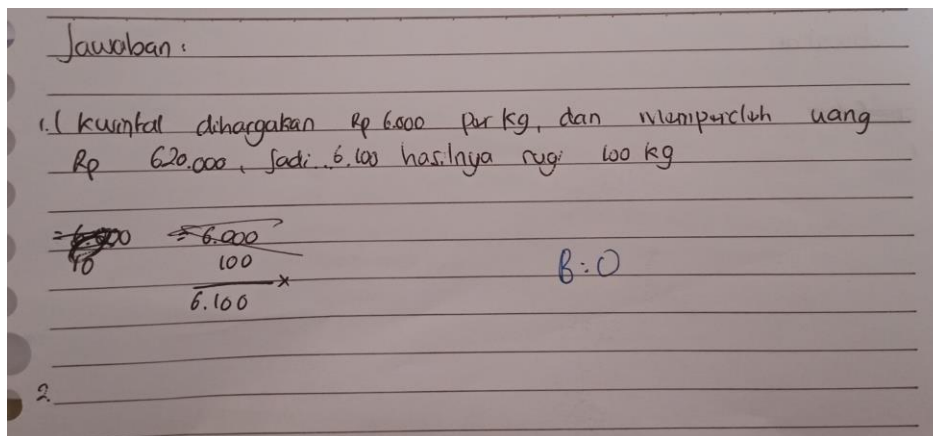 Jawaban :
1. 1 kwintal dihargakan Rp 6.000 per kg, dan memperoleh uang
Rp 620.000, Jadi 6.100 hasilnya rugi 100 kg
= 6.000
100
10
6.100 ×
B : 0
2.